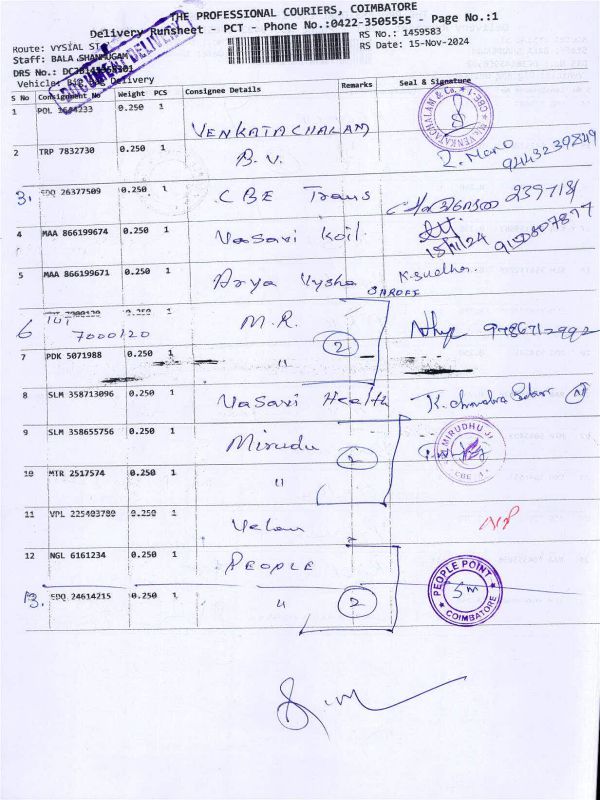 THE PROFESSIONAL COURIERS, COIMBATORE
Delivery Runsheet - PCT - Phone No.:0422-3505555 - Page No.:1
Route: VYSIAL ST
RS No.: 1459583
Staff: BALA SHANMUGAM
RS Date: 15-Nov-2024
DRS No.:
Vehicle: Delivery
S No Consignment No Weight PCS Consignee Details Remarks Seal & Signature
1 POL 0.250 1 VENKATACHALAM
2 TRP 7832730 0.250 1 B.V. 9443239849
3. EDQ 26377509 0.250 1 CBE Trans 239718
4 MAA 866199674 0.250 1 Vasavi Koil 15/11/24 9150807877
5 MAA 866199671 0.250 1 Arya Vysha K. Sudha
6 TUT 7000120 0.250 1 M.R. 9786712992
7 PDK 5071988 0.250 1 " 2
8 SLM 358713096 0.250 1 Vasavi Health
9 SLM 358655756 0.250 1 Mirudu 2
10 MTR 2517574 0.250 1 "
11 VPL 225403780 0.250 1 Velan
12 NGL 6161234 0.250 1 PEOPLE
PEOPLE POINT
COIMBATORE
13. EDQ 24614215 0.250 1 " 2